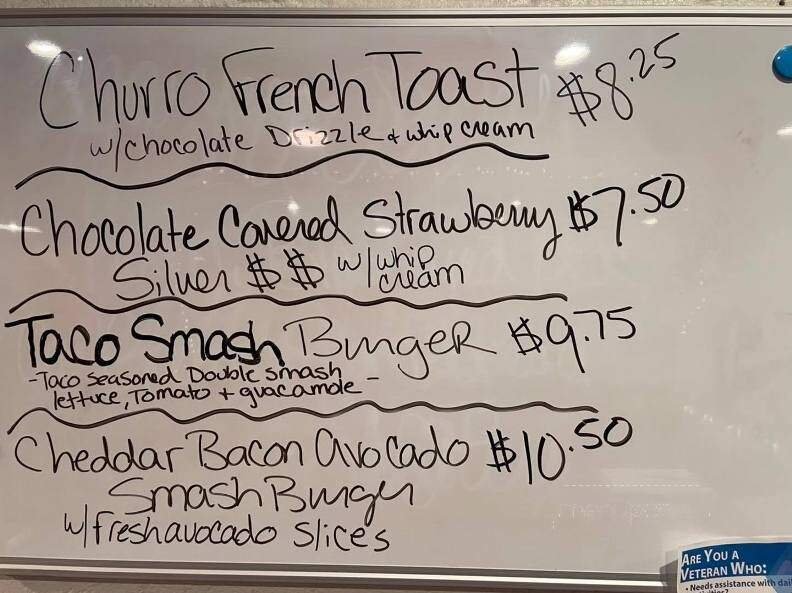 Churro French Toast $8.25
w/chocolate Drizzle + whip cream
Chocolate Covered Strawberry $7.50
Silver $$ w/whip cream
Taco Smash Burger $9.75
-Taco seasoned Double smash
lettuce, Tomato + guacamole -
Cheddar Bacon Avocado $10.50
Smash Burger
w/fresh avocado slices
ARE YOU A
VETERAN WHO:
• Needs assistance with